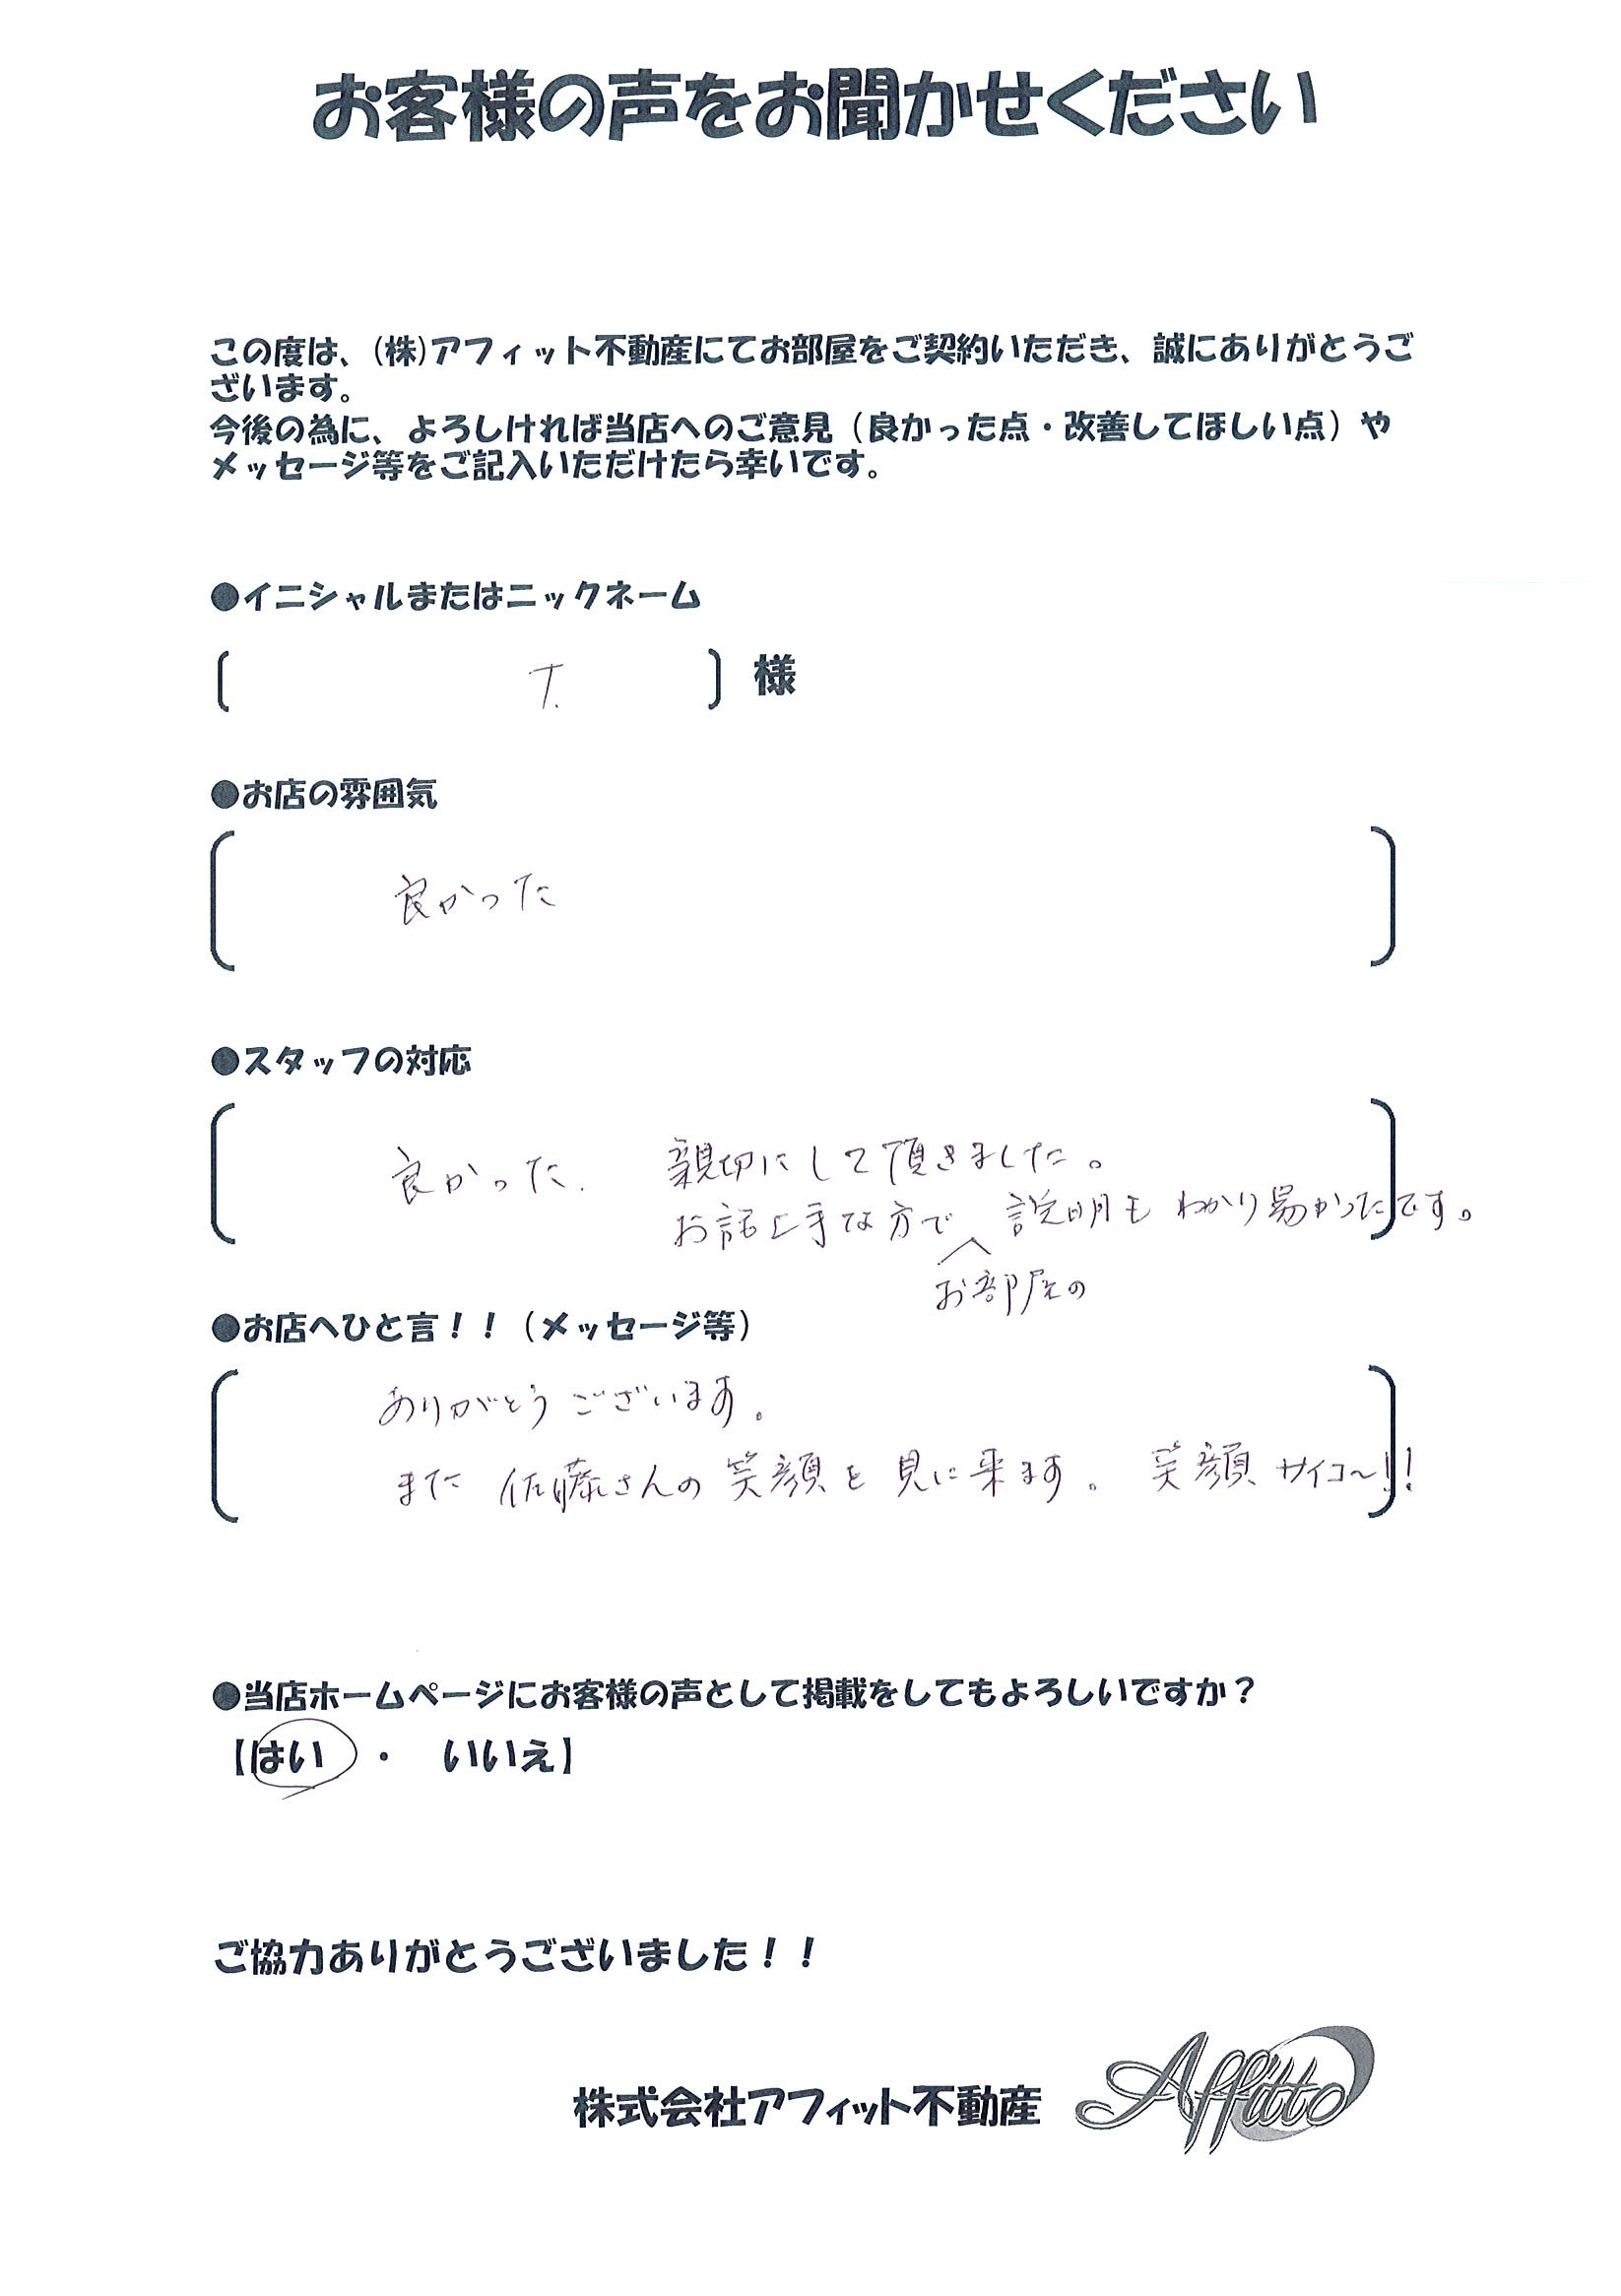 お客様の声をお聞かせください
この度は、(株)アフィット不動産にてお部屋をご契約いただき、誠にありがとうご
ざいます。
今後の為に、よろしければ当店へのご意見（良かった点・改善してほしい点）や
メッセージ等をご記入いただけたら幸いです。
●イニシャルまたはニックネーム
〔 T. 〕様
●お店の雰囲気
良かった
●スタッフの対応
良かった. 親切にして頂きました。
お話上手な方で 説明も わかり易かったです。
お部屋の
●お店へひと言！！（メッセージ等）
ありがとう ございます。
また 佐藤さんの 笑顔を 見に来ます。 笑顔 サイコ〜!!
●当店ホームページにお客様の声として掲載をしてもよろしいですか？
【はい ・ いいえ】
ご協力ありがとうございました！！
株式会社アフィット不動産 Affitto